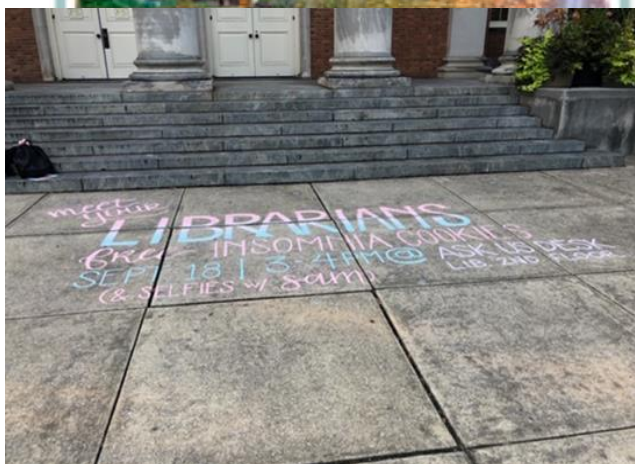 meet
your
LIBRARIANS
free INSOMNIA COOKIES
SEPT 18 | 3-4PM @ ASK US DESK
LIB. 2ND FLOOR
(& SELFIES w/ Sam)